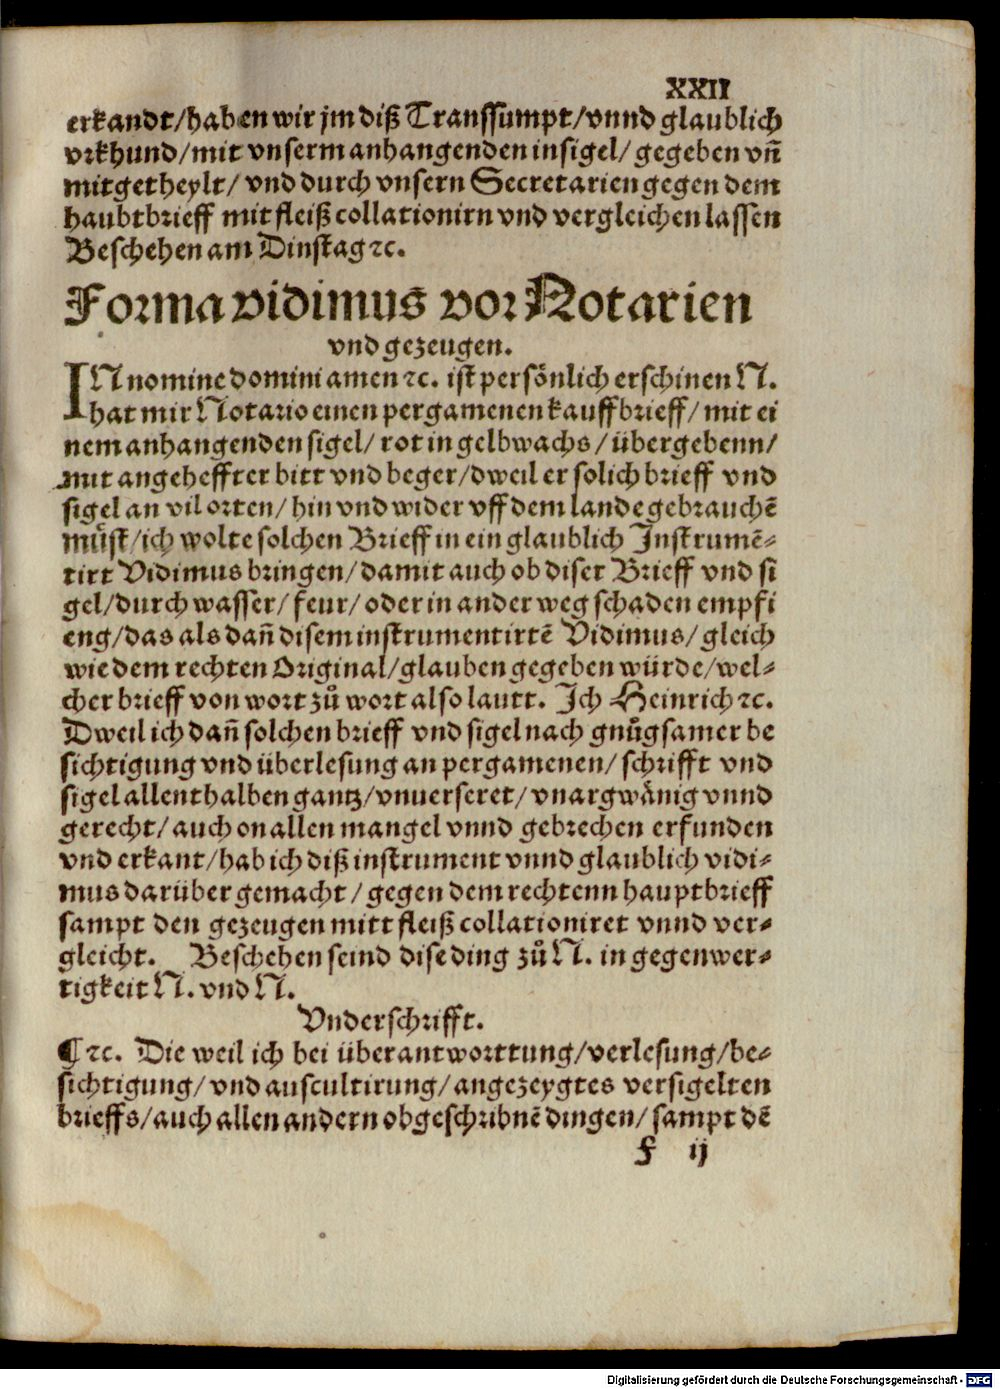 XXII
erkandt/haben wir jm diß Transsumpt/vnnd glaublich
vrkhund/mit vnserm anhangenden insigel/gegeben vñ
mitgetheylt/vnd durch vnsern Secretarien gegen dem
haubtbrieff mit fleiß collationirn vnd vergleichen lassen
Beschehen am Dinstag ꝛc.
Forma vidimus vor Notarien
vnd gezeugen.
IN nomine domini amen ꝛc. ist persönlich erschinen N.
hat mir Notario einen pergamenen kauffbrieff/mit ei
nem anhangenden sigel/rot in gelbwachs/übergebenn/
mit angeheffter bitt vnd beger/dweil er solich brieff vnd
sigel an vil orten/hin vnd wider vff dem lande gebrauchē
mùͤst/ich wolte solchen Brieff in ein glaublich Instrumē-
tirt Vidimus bringen/damit auch ob diser Brieff vnd si
gel/durch wasser/feur/oder in ander weg schaden empfi
eng/das als dañ disem instrumentirtē Vidimus/gleich
wie dem rechten Original/glauben gegeben würde/wel-
cher brieff von wort zů wort also lautt. Ich Heinrich ꝛc.
Dweil ich dañ solchen brieff vnd sigel nach gnůgsamer be
sichtigung vnd überlesung an pergamenen/schrifft vnd
sigel allenthalben gantz/vnuerseret/vnargwänig vnnd
gerecht/auch on allen mangel vnnd gebrechen erfunden
vnd erkant/hab ich diß instrument vnnd glaublich vidi-
mus darüber gemacht/gegen dem rechtenn hauptbrieff
sampt den gezeugen mitt fleiß collationiret vnnd ver-
gleicht. Beschehen seind dise ding zů N. in gegenwer-
tigkeit N. vnd N.
Vnderschrifft.
¶ ꝛc. Die weil ich bei überantworttung/verlesung/be-
sichtigung/vnd auscultirung/angezeygtes versigelten
brieffs/auch allen andern obgeschribnē dingen/sampt dē
F ij
Digitalisierung gefördert durch die Deutsche Forschungsgemeinschaft - DFG